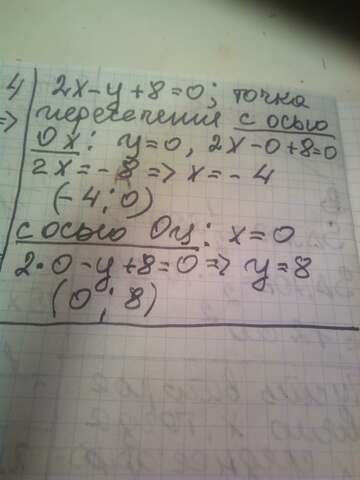 4 2x-y+8=0; точка
=> пересечения с осью
Ox: y=0, 2x-0+8=0
2x=-8=>x=-4
(-4; 0)
с осью Oy: x=0
2·0-y+8=0=>y=8
(0; 8)